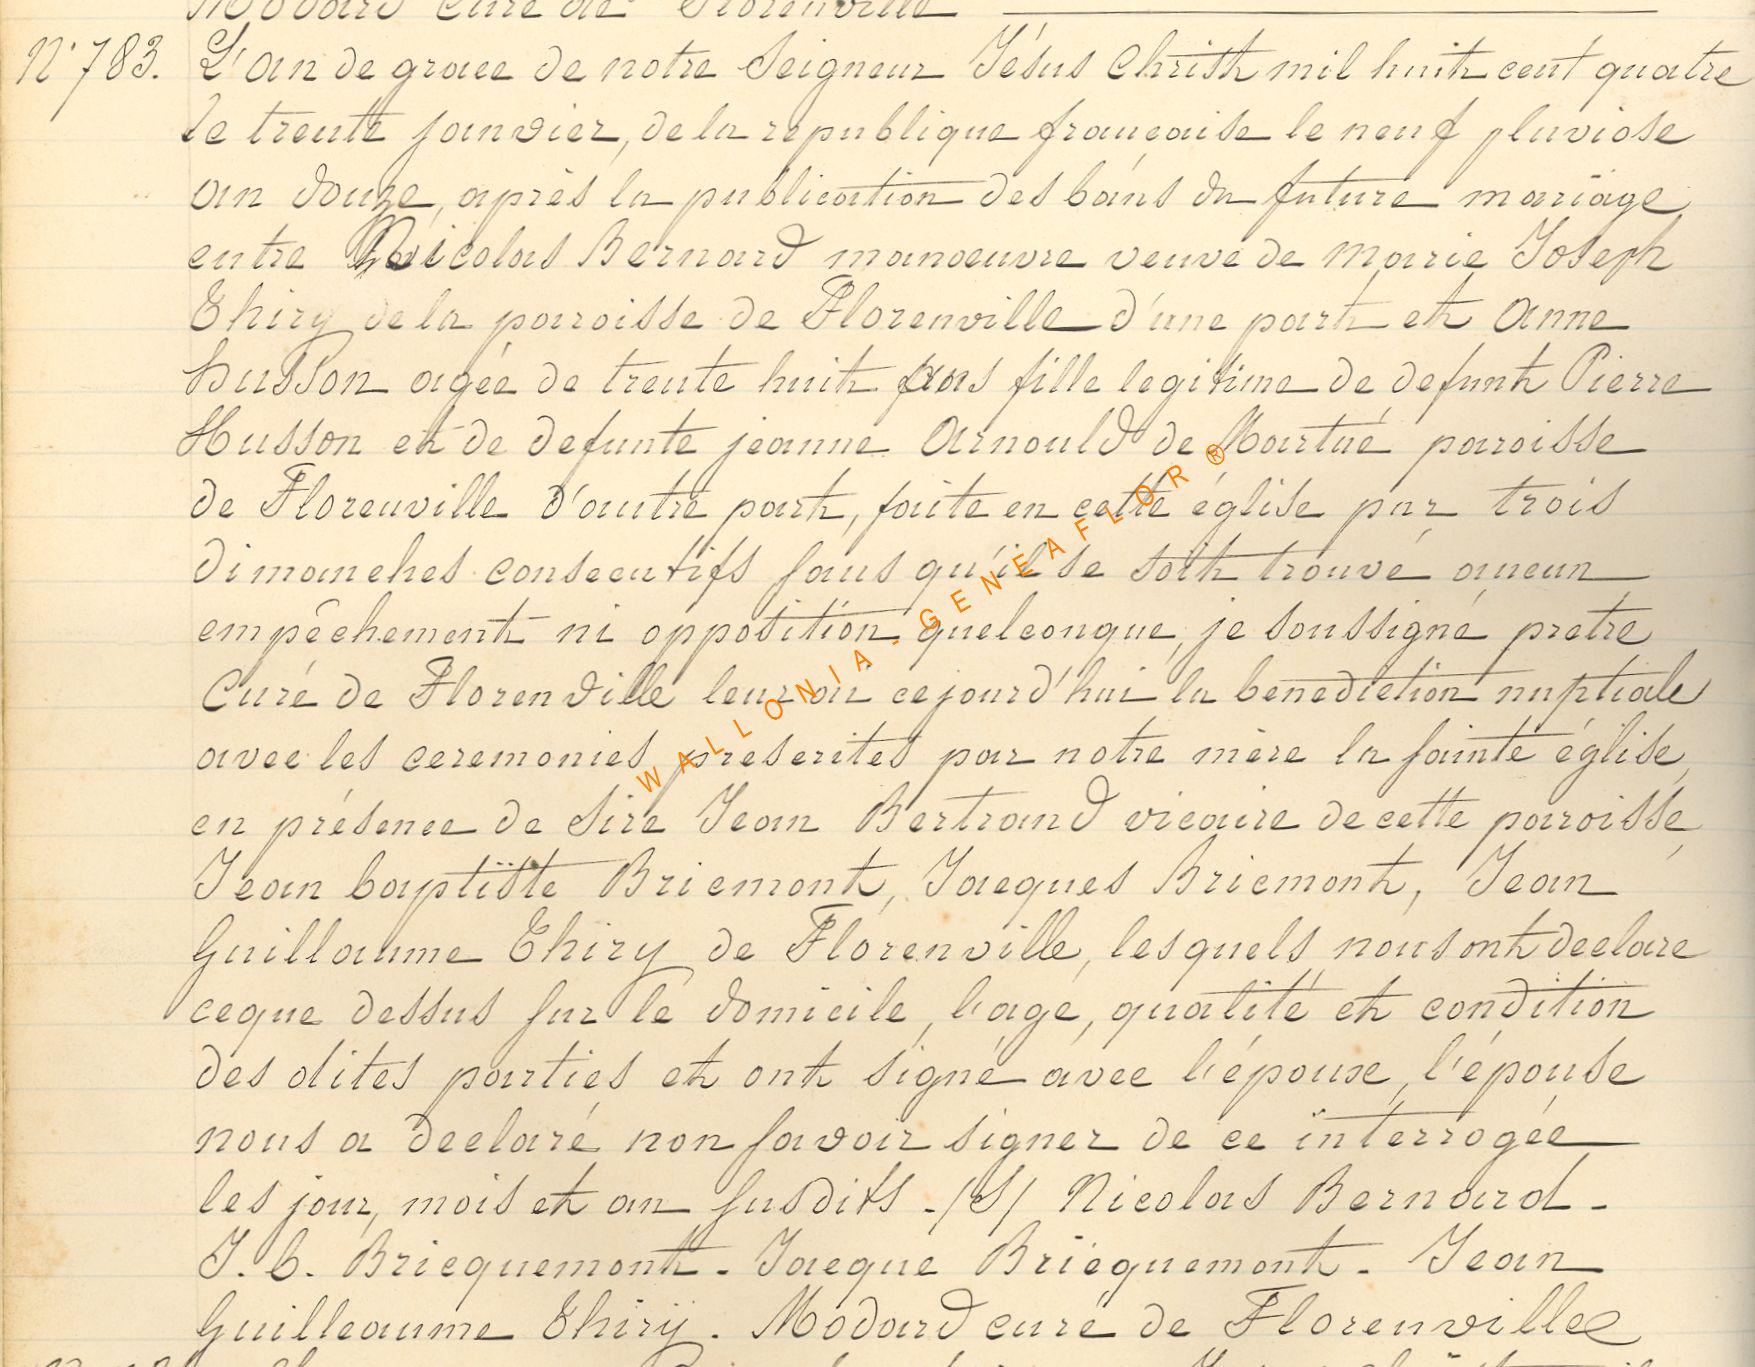 Modard curé de Florenville
N° 783. L'an de grace de notre Seigneur Jésus Christ mil huit cent quatre
le trente janvier, de la république française le neuf pluviose
an douze, après la publication des bans du future mariage
entre Nicolas Bernard manoeuvre veuve de marie Joseph
Thiry de la paroisse de Florenville d'une part et Anne
husson agée de trente huit ans fille legitime de defunt Pierre
Husson et de defunte jeanne Arnould de Martué paroisse
de Florenville d'autre part, faite en cette église par trois
dimanches consecutifs sans qu'il se soit trouvé aucun
empêchement ni opposition quelconque, je soussigné pretre
Curé de Florenville leur ai cejourd'hui la benediction nuptiale
avec les ceremonies prescrites par notre mère la sainte église,
en présence de Sire Jean Bertrand vicaire de cette paroisse,
Jean baptiste Briemont, Jacques Briemont, Jean
Guillaume Thiry de Florenville, lesquels nous ont declare
ceque dessus sur le domicile, l'age, qualité et condition
des dites parties et ont signé avec l'époux, l'épouse
nous a declaré non savoir signer de ce interrogée
les jour, mois et an susdits - /S/ Nicolas Bernard -
J. b. Bricquemont - Jacque Bricquemont - Jean
Guilleaume Thiry. Modard curé de Florenville
WALLONIA - GENEAFLOR ®